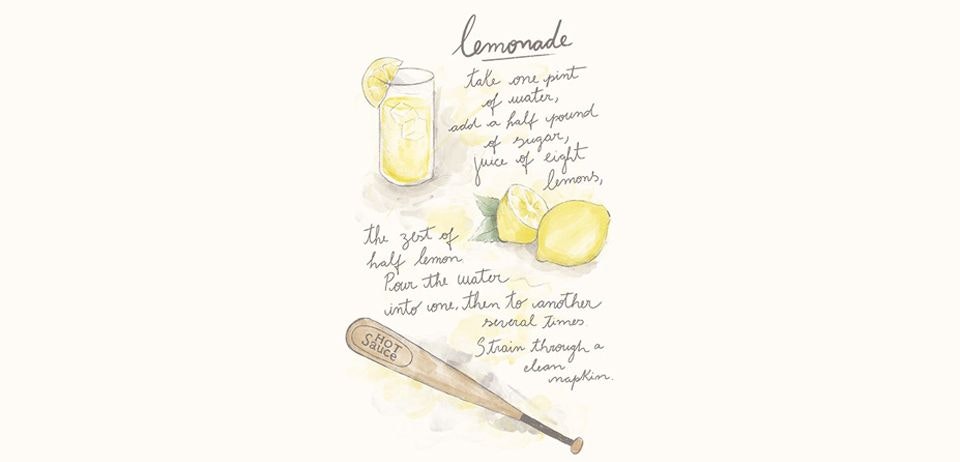 lemonade
take one pint
of water,
add a half pound
of sugar,
juice of eight
lemons,
the zest of
half lemon.
Pour the water
into one, then to another
several times.
Strain through a
clean
napkin.
HOT
Sauce